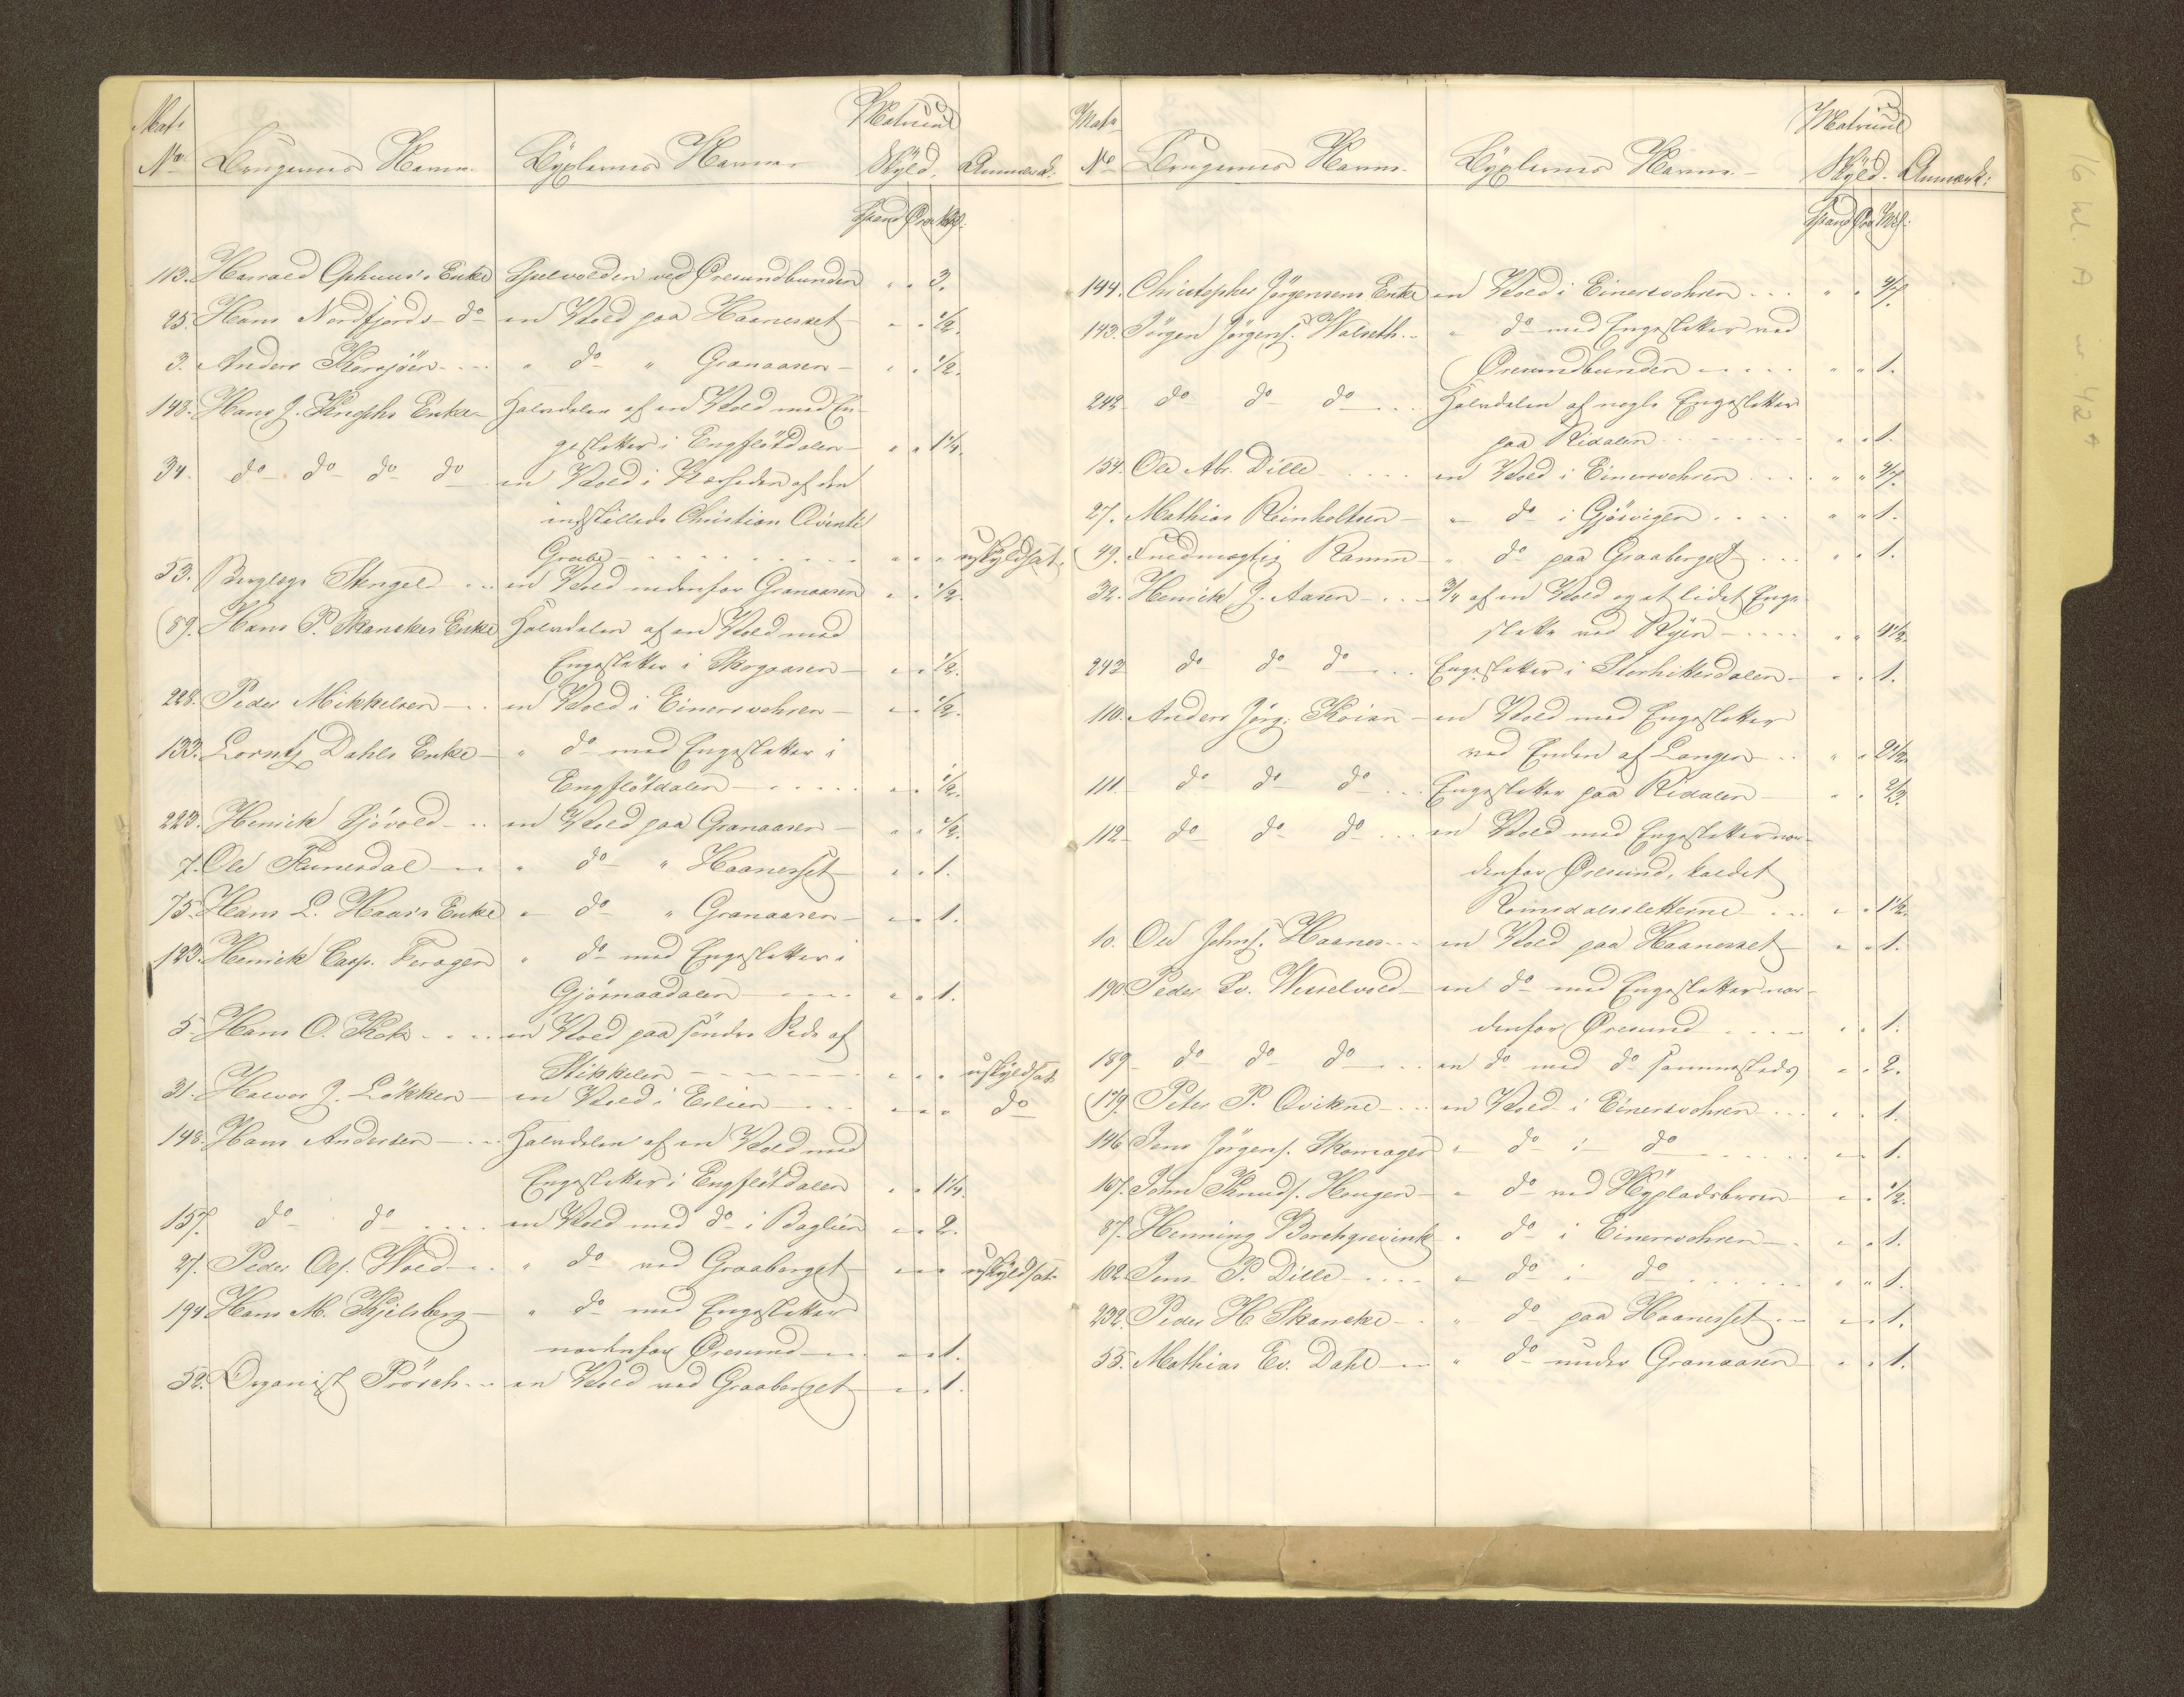 Mat:
No. Brugernes Navne. Byxlernes Navne. Matricul Skyld. Anmærk:
Spand Øre Mkl:
113. Harrald Ophuus's Enke Spelvolden ved Øresundbunden " " 3.
25. Hans Nordfjords do en Vold paa Haanesset " " 1/2.
3. Anders Korsjöen " do " Granaasen " " 1/2.
148. Hans J. Knophs Enke Halvdelen af en Vold med En-
geslætter i Engflötdalen " " 1 1/4.
34. do do do do en Vold i af den
indstillede Christian Qvinti
Grube " " " uskyldsat.
53. Stengel en Vold nedenfor Granaasen " " 1/2.
(89. Hans P. Skanckes Enke Halvdelen af en Vold med
Engeslætter i Skogaasen " " 1/2.
228. Peder Mikkelsen en Vold i Einersvohren " " 1/2.
133. Lorntz Dahls Enke " do med Engeslætter i
Engflötdalen " " 1/2.
223. Henrick Sjövold en Vold paa Granaasen " " 1/2.
7. Ole Funesdal " do " Haanesset " " 1.
75. Hans L. Haas's Enke " do " Granaasen " " 1.
123. Henrick Casp. Feragen " do med Engeslætter i
Gjösnaadalen " " 1.
5. Hans O. Kok en Vold paa söndre Side af
Stikkelen " " " uskyldsat
31. Halvor J. Løkken en Vold i Erlien " " " do
148. Hans Andersen Halvdelen af en Vold med
Engeslætter i Engflötdalen " " 1 1/4.
157. do do en Vold med do i Baglien " " 2.
27. Peder Ols. Wold " do ved Graaberget " " " uskyldsat
194. Hans M. Kjelsberg " do med Engeslætter
nordenfor Øresund " " 1.
52. Organist Prösch en Vold ved Graaberget " " 1.
Matr.
No. Brugernes Navne. Byxlernes Navne. Matricul Skyld. Anmærk:
Spand Øre Mkl:
144. Christopher Jørgensens Enke en Vold i Einersvohren " " 2/7.
143. Jörgen Jørgens. Walseth " do med Engeslætter ved
Øresundbunden " " 1.
242. do do do Halvdelen af nogle Engeslætter
paa Ridalen " " 1.
154. Ole Ab. Dille en Vold i Einersvohren " " 2/7.
27. Mathias Reinholtsen " do i Gjösvigen " " 1.
(49. Fuedmægtig Ramm " do paa Graaberget " " 1.
32. Henrick J. Aasen 3/4 af en Vold og et lidet Enge
slætte ved Ryen " " 4 1/2.
243 do do do Engeslætter i Storhitterdalen " " 1.
110. Anders Jörg. Koien en Vold med Engeslætter
ved Enden af Langen " " 2 1/2.
111 do do do Engeslætter paa Ridalen " " 2/3.
112 do do do en Vold med Engeslætter nor-
denfor Øresund, kaldet
Roinsdalssletterne " " 1 1/2.
10. Ole Johns. Haanes en Vold paa Haanesset " " 1.
190 Peder Ev. Wesselvold en do med Engeslætter nor-
denfor Øresund " " 1.
189 do do do en do med do sammesteds " " 2.
(179. Peter P. Qvikne en Vold i Einersvohren " " 1.
146 Jens Jörgens. Skomager " do i do " " 1.
167. John Knuds. Hougen " do ved Hÿpladsbroen " " 1/2.
87. Henning Borchgrevink " do i Einersvohren " " 1.
102. Jens P. Dille " do i do " " 1.
232. Peder H Skancke " do paa Haanesset " " 1.
55. Mathias Ev. Dahl " do under Granaasen " " 1.
16 kl. A nr 427